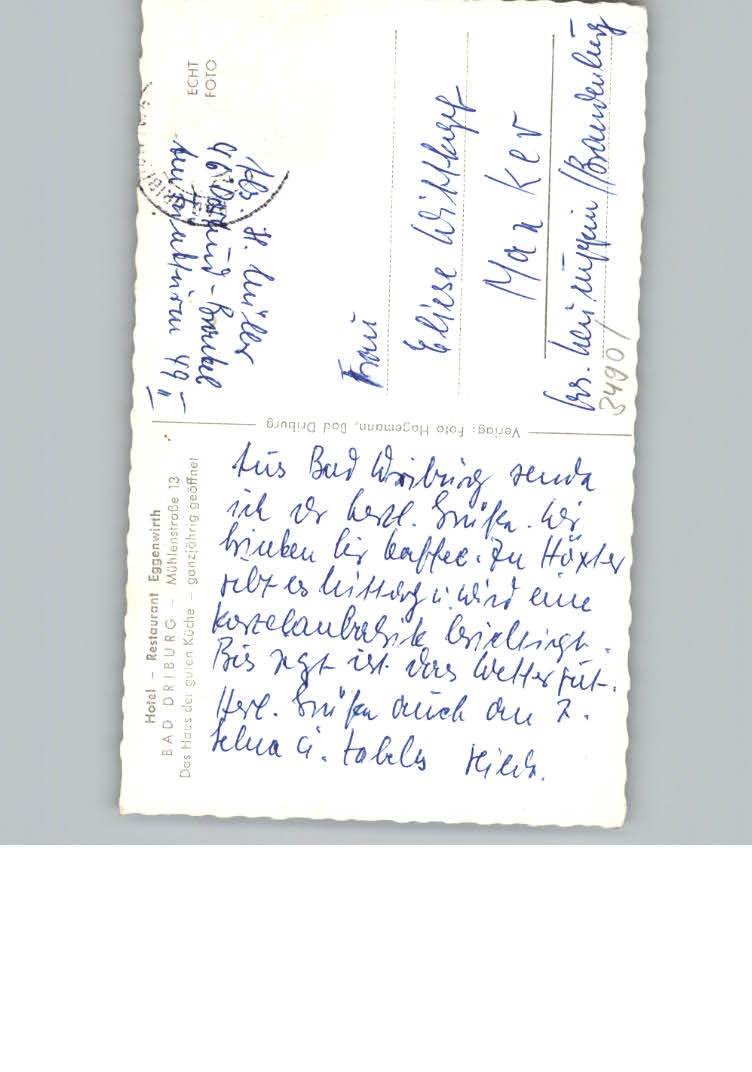 Hotel – Restaurant Eggenwirth
BAD DRIBURG – Mühlenstraße 13
Das Haus der guten Küche – ganzjährig geöffnet
Aus Bad Driburg sende
ich Dir herzl. Grüße. Wir
trinken hier Kaffee. In Höxter
gibt es Mittag u. wird eine
besichtigt.
Bis jetzt ist das Wetter gut.
Herzl. Grüße auch an
u.
Verlag: Foto Hagemann, Bad Driburg
ECHT
FOTO
Abs. H. Müller
46 Dortmund-Brackel
49
Frau
Eliese Wittkopf
Manker
Krs. Neuruppin/Brandenburg
3490/